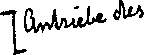 Antriebe des